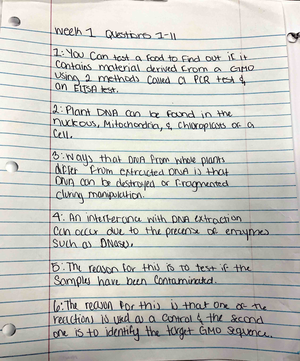 Week 7 Questions 1-11
1: You can test a food to find out if it
contains material derived from a GMO
using 2 methods called a PCR test &
an ELISA test.
2: Plant DNA can be found in the
nucleus, Mitochondria, & Chloroplasts of a
cell.
3: Ways that DNA from whole plants
differ from extracted DNA is that
DNA can be destroyed or fragmented
during manipulation.
4: An interference with DNA extraction
can occur due to the presence of enzymes
such as DNases.
5: The reason for this is to test if the
samples have been contaminated.
6: The reason for this is that one of the
reactions is used as a control & the second
one is to identify the target GMO sequence.